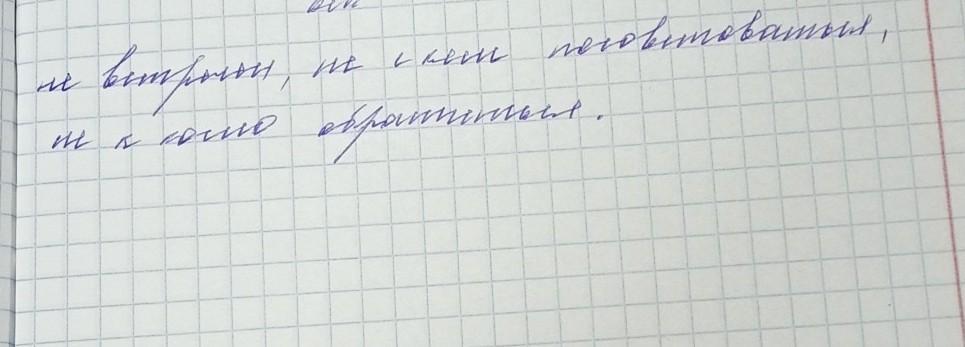 не встречен, не с кем посоветоваться,
не к кому обратиться.